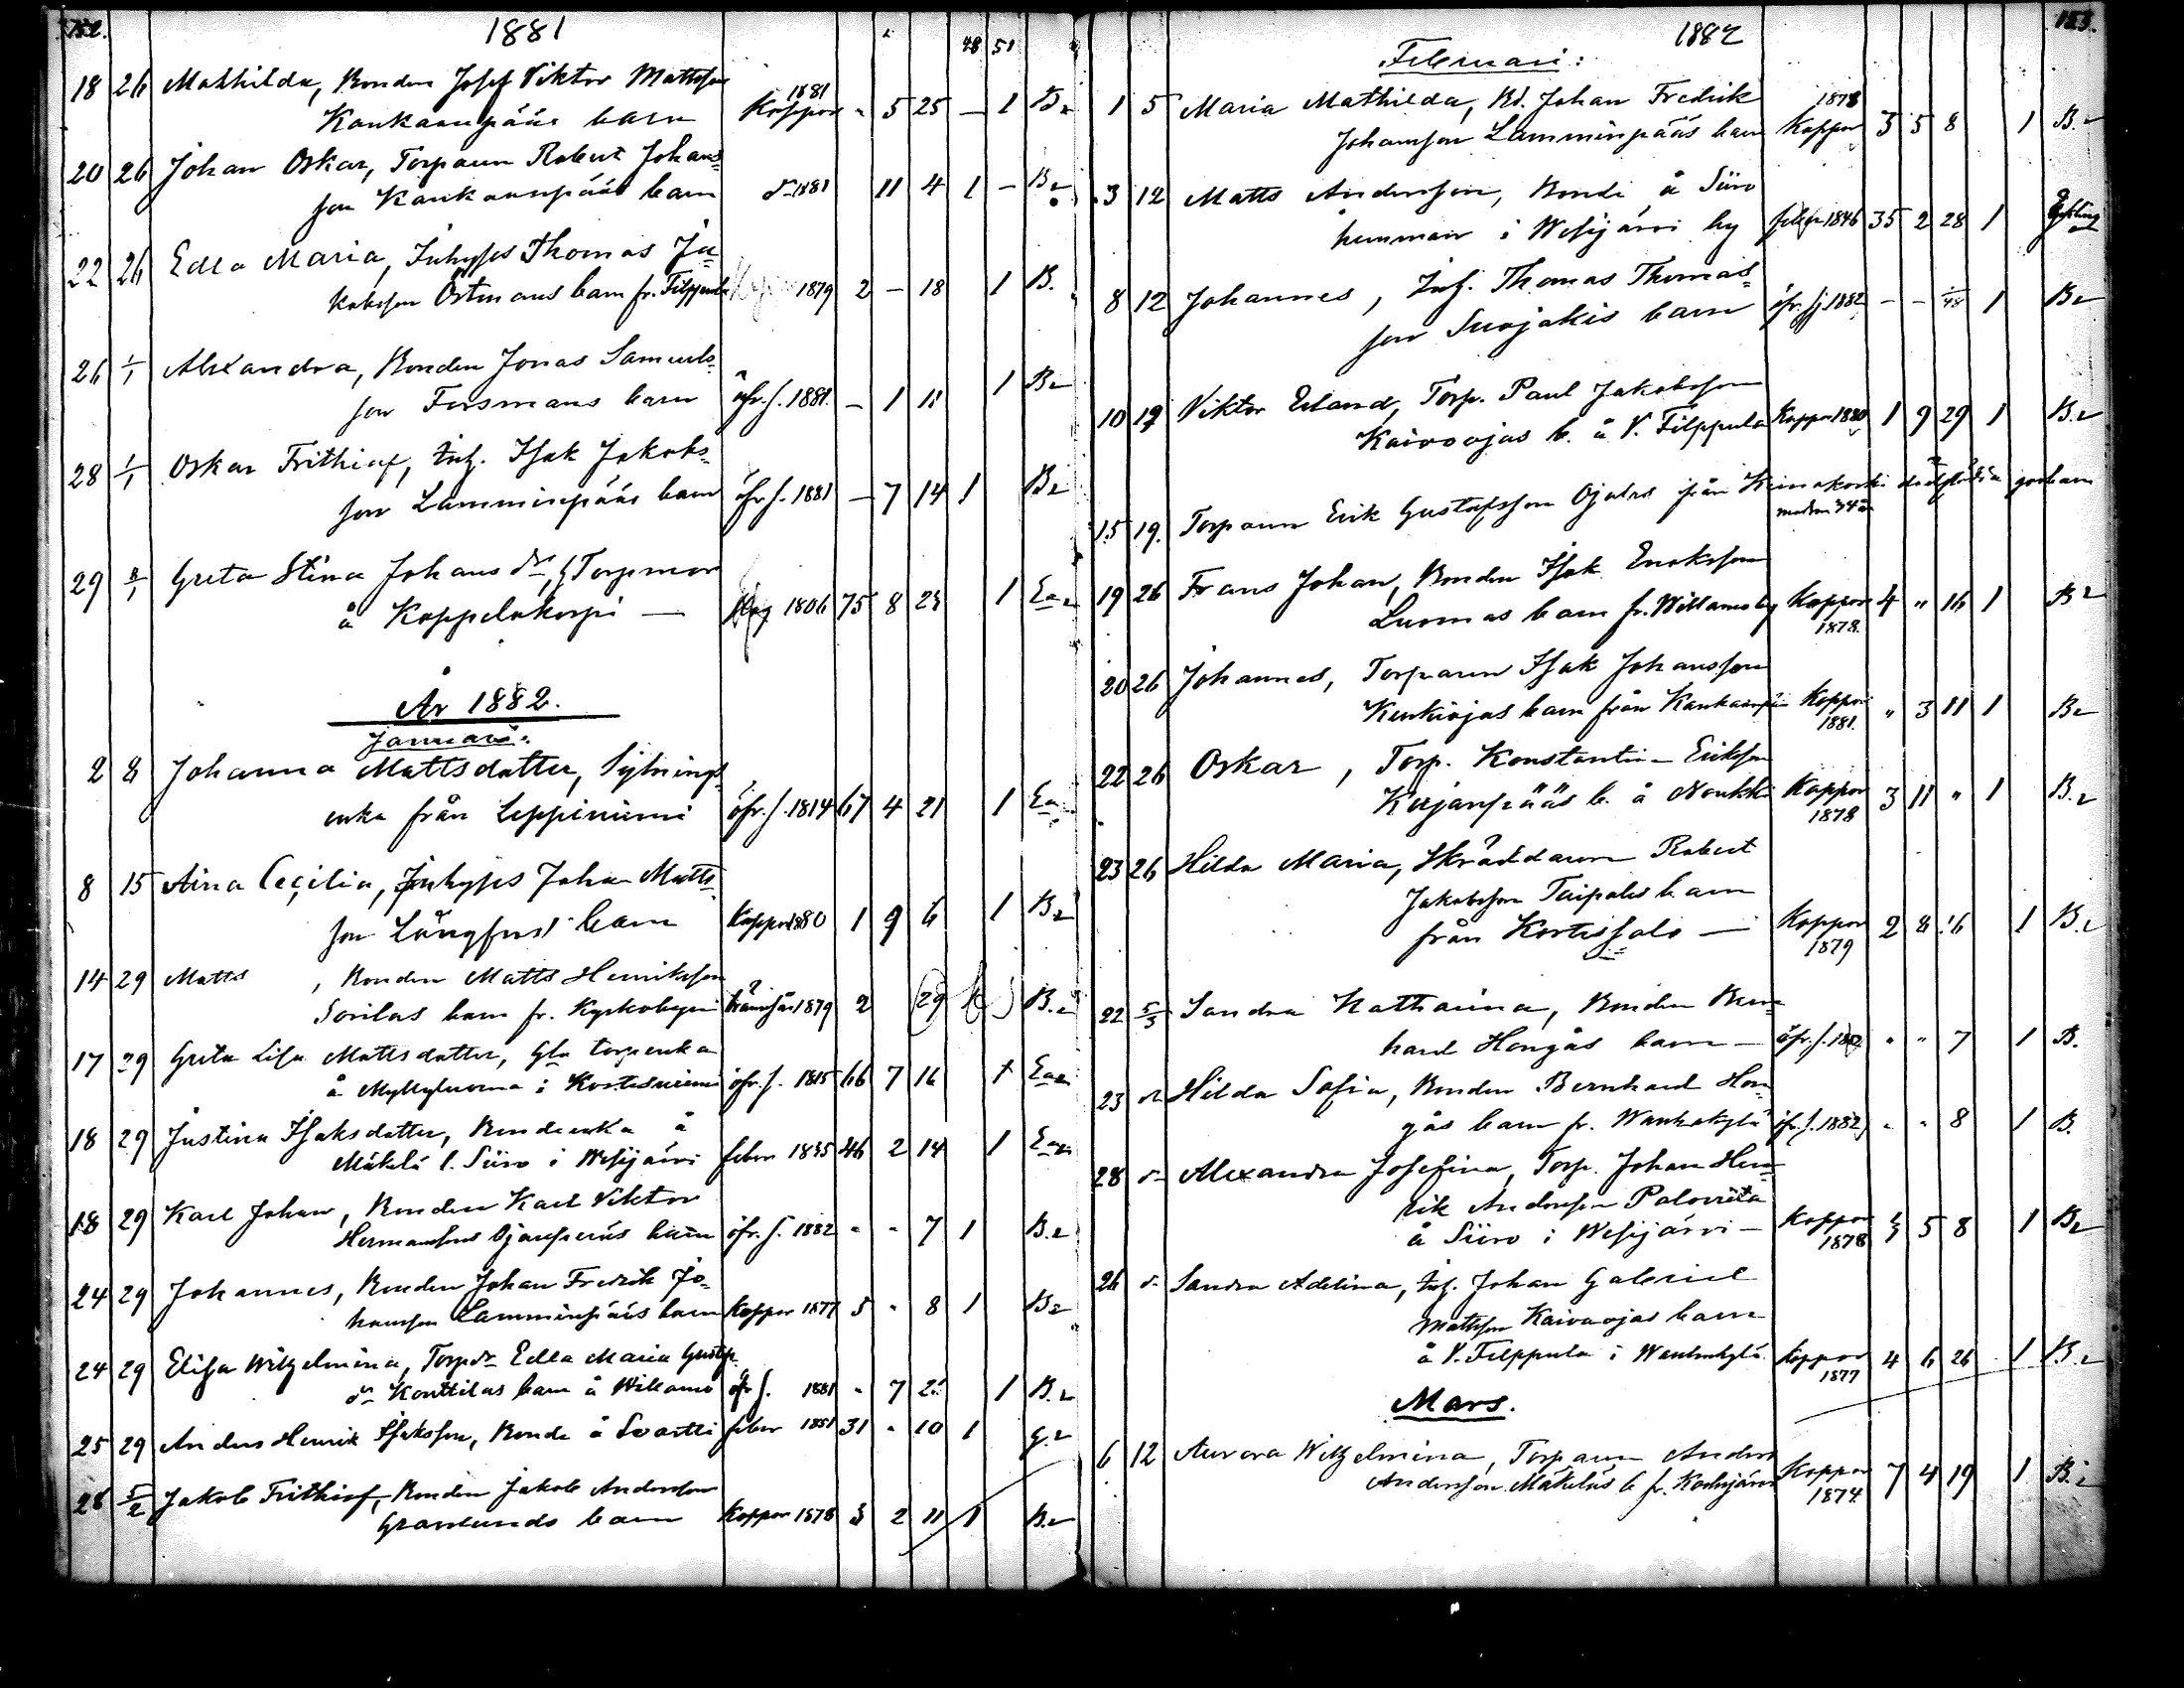 152.
1881
48 51
18 26 Mathilda, Bonden Josef Viktor Mattsson
Kankaanpääs barn Koppor 1881 " 5 25 — 1 B.
20 26 Johan Oskar, Torparen Robert Johans=
son Kankaanpääs barn d:o 1881 11 4 1 — B.
22 26 Edla Maria, Inhyses Thomas Ja=
kobsson Östmans barn fr. Filppula 1879 2 — 18 1 B.
26 1/1 Alexandra, Bonden Jonas Samuels=
son Forsmans barn öfr. s. 1881. — 1 11 1 B.
28 1/1 Oskar Frithiof, Inh. Isak Jakobs=
son Lamminpääs barn öfr. s. 1881 — 7 14 1 B.
29 8/1 Greta Stina Johansdr, Torpmor
å Koppelokorpi — 1806 75 8 23 1 Ea.
År 1882.
Januari:
2 8 Johanna Mattsdotter, Sytnings=
enka från Leppiniemi öfr. s. 1814 67 4 21 1 Ea.
8 15 Aina Cecilia, Inhyses Johan Matts=
son Långfors barn Koppor 1880 1 9 6 1 B.
14 29 Matts , Bonden Matts Henriksson
Sorilas barn fr. Kyrkobyn 1879 2 29 B.
17 29 Greta Lisa Mattsdotter, Gla torpenka
å Myllyluoma i öfr. s. 1815 66 7 16 1 Ea.
18 29 Justina Isaksdotter, Bondeenka å
Mäkelä l. Siiro i Wesijärvi feber 1835 46 2 14 1 Ea.
18 29 Karl Johan, Bonden Karl Viktor
Hermansson barn öfr. s. 1882 " " 7 1 B.
24 29 Johannes, Bonden Johan Fredrik Jo=
hansson Lamminpääs barn Koppor 1877 5 " 8 1 B.
24 29 Elisa Wilhelmina, Torpdr Edla Maria Gustafs
dr Konttilas barn å Wikamo öfr s. 1881 " 7 1 B.
25 29 Anders Henrik Isaksson, Bonde å Svartti feber 1851 31 " 10 1 G.
28 5/2 Jakob Frithiof, Bonden Jakob Andersson
Granlunds barn Koppor 1878 3 2 11 1 B.
153.
1882
Februari:
1 5 Maria Mathilda, Bd. Johan Fredrik
Johansson Lamminpääs barn Koppor 1878 3 5 8 1 B.
3 12 Matts Andersson, Bonde å Siiro
hemman i Wesijärvi by feber 1846 35 2 28 1
8 12 Johannes, Inh. Thomas Thomas=
son Suojokis barn öfr. sj. 1882 — — 1/48 1 B.
10 19 Viktor Erland, Torp. Paul Jakobsson
Kaivoojas b. å V. Filppula Koppor 1880 1 9 29 1 B.
15 19. Torparen Erik Gustafsson Ojalas från dödfödda gossbarn
modren 34 år
19 26 Frans Johan, Bonden Isak Enoksson
Luomas barn fr. Wikamo by Koppor 1878. 4 " 16 1 B.
20 26 Johannes, Torparen Isak Johansson
barn från Kankaanpää Koppor 1881. " 3 11 1 B.
22 26 Oskar, Torp. Konstantin Eriksson
b. å Koppor 1878 3 11 " 1 B.
23 26 Hilda Maria, Skräddaren Robert
Jakobsson Taipales barn
från Kortissalo — Koppor 1879 2 8 16 1 B.
22 5/3 Sandra Katharina, Bonden Bern=
hard Hongås barn — öfr. s. 1882 " " 7 1 B.
23 d:o Hilda Sofia, Bonden Bernhard Hon=
gås barn fr. Wanhakylä öfr. s. 1882 " " 8 1 B.
28 d:o Alexandra Josefina, Torp. Johan Hen=
rik Andersson Palovita
å Siiro i Wesijärvi — Koppor 1878 3 5 8 1 B.
26 d:o Sandra Adelina, Inh. Johan Gabriel
Mattsson Kaivoojas barn
å V. Filppula i Wanhakylä Koppor 1877 4 6 26 1 B.
Mars.
6 12 Aurora Wilhelmina, Torparen Anders
Andersson Mäkeläs b. fr. Koppor 1874 7 4 19 1 B.